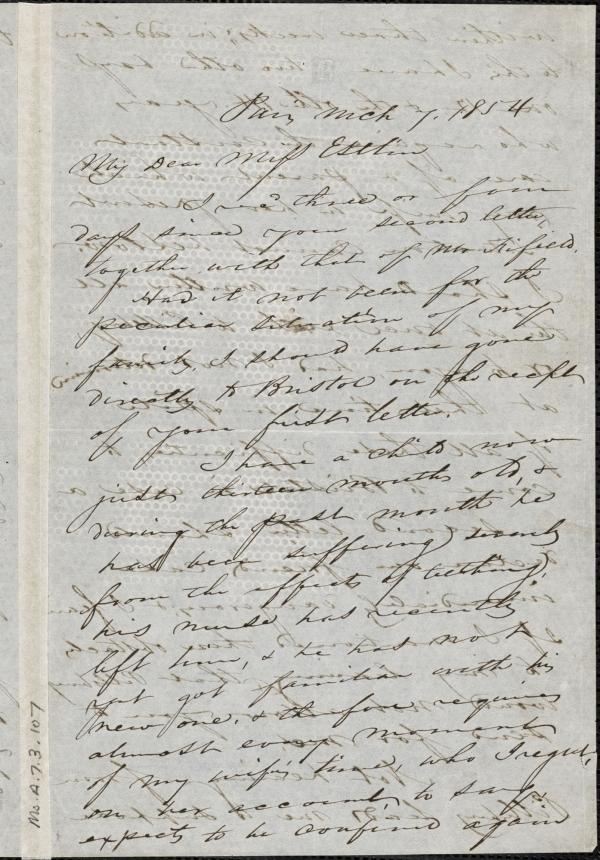 Paris, Mch 7. 1854
My Dear Miss Estlin
I recd three or four
days since your second letter,
together with that of Mr. Armfield.
Had it not been for the
peculiar situation of my
family I should have gone
directly to Bristol on the receipt
of your first letter.
I have a child now
just thirteen months old, &
during the past month he
has been suffering severely
from the effects of teething,
his nurse has recently
left him, & he has not
yet got familiar with his
new one, & therefore requires
almost every moment
of my wife's time, who I regret,
on her account, to say,
expects to be confined again
Ms.A.7.3.107